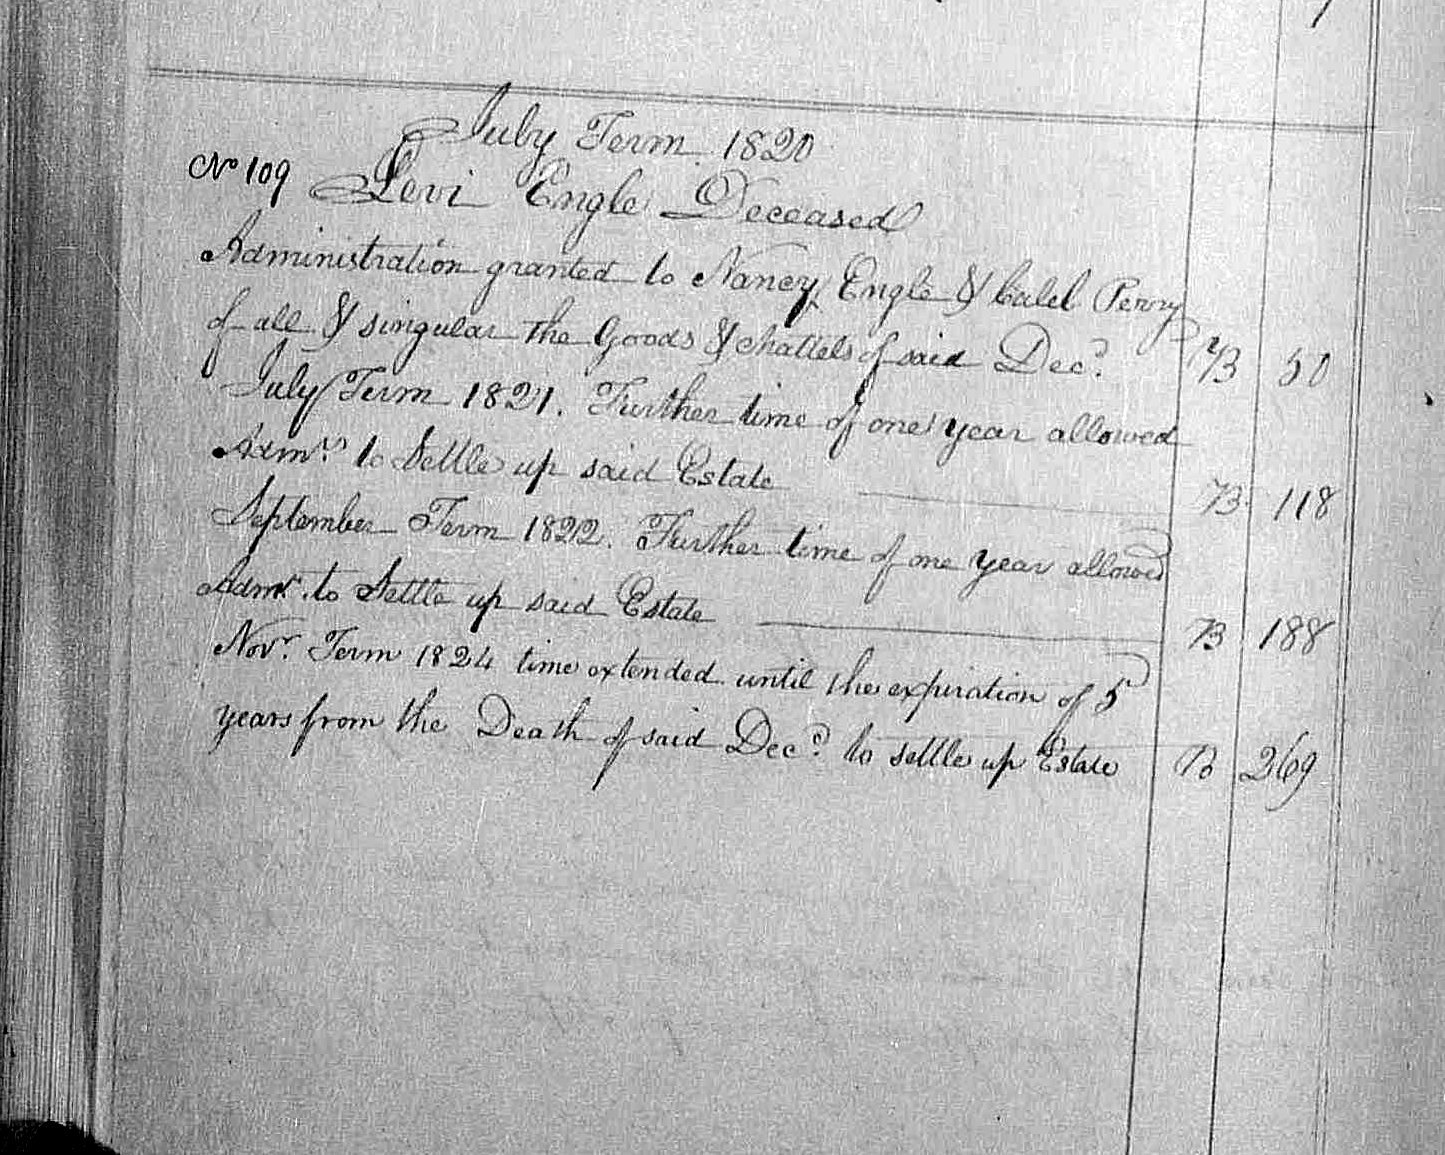 July Term 1820
No 109 Levi Engle Deceased
Administration granted to Nancy Engle & Calel Perry
of all & singular the Goods & chattels of said Decd. B 50
July Term 1821. Further time of one year allowed
Admrs. to Settle up said Estate B 118
September Term 1822. Further time of one year allowed
Admr. to Settle up said Estate B 188
Novr. Term 1824 time extended until the expiration of 5
years from the Death of said Decd. to settle up Estate B 269